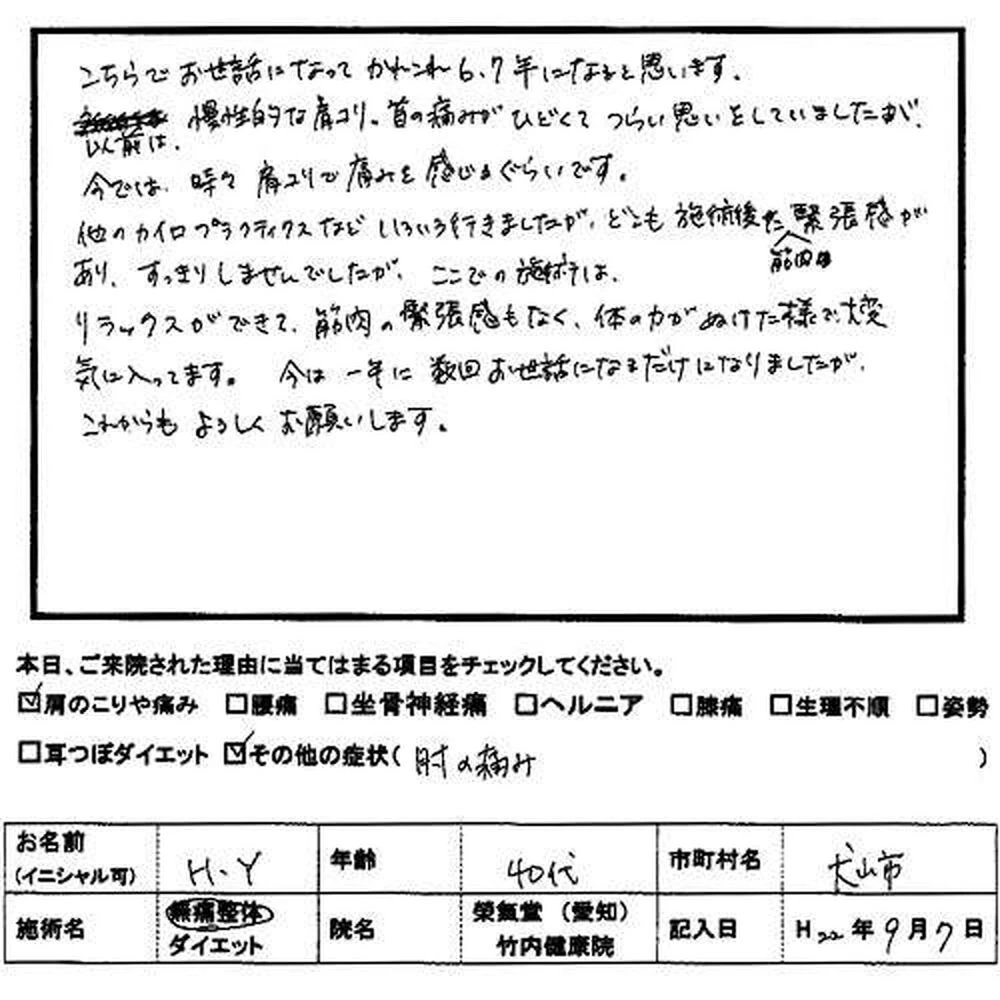 こちらでお世話になって かれこれ6.7年になると思います。
以前は、慢性的な肩コリ。首の痛みが ひどくて つらい思いをしていましたが、
今では、時々 肩コリで痛みを感じるぐらいです。
他のカイロプラクティクスなど いろいろ行きましたが、どこも 施術後 筋肉に緊張感が
あり、すっきりしませんでしたが、ここでの施術は、
リラックスができて、筋肉の緊張感もなく、体の力がぬけた様で、大変
気に入ってます。 今は 一年に 数回 お世話になるだけになりましたが、
これからも よろしく お願いします。
本日、ご来院された理由に当てはまる項目をチェックしてください。
☑肩のこりや痛み □腰痛 □坐骨神経痛 □ヘルニア □膝痛 □生理不順 □姿勢
□耳つぼダイエット ☑その他の症状( 肘の痛み )
お名前 (イニシャル可) H.Y 年齢 40代 市町村名 犬山市
施術名 無痛整体 ダイエット 院名 榮氣堂 (愛知) 竹内健康院 記入日 H22年9月7日